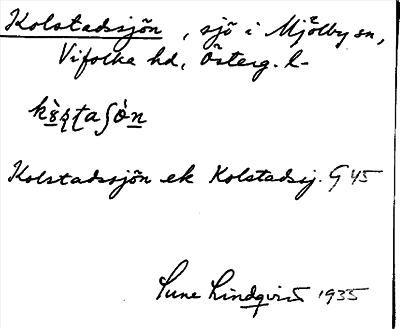 Kolstadssjön, sjö i Mjölby sn,
Vifolka hd, Österg. l-
Kolstadssjön ek Kolstadssj. G 45
Sune Lindqvist 1935